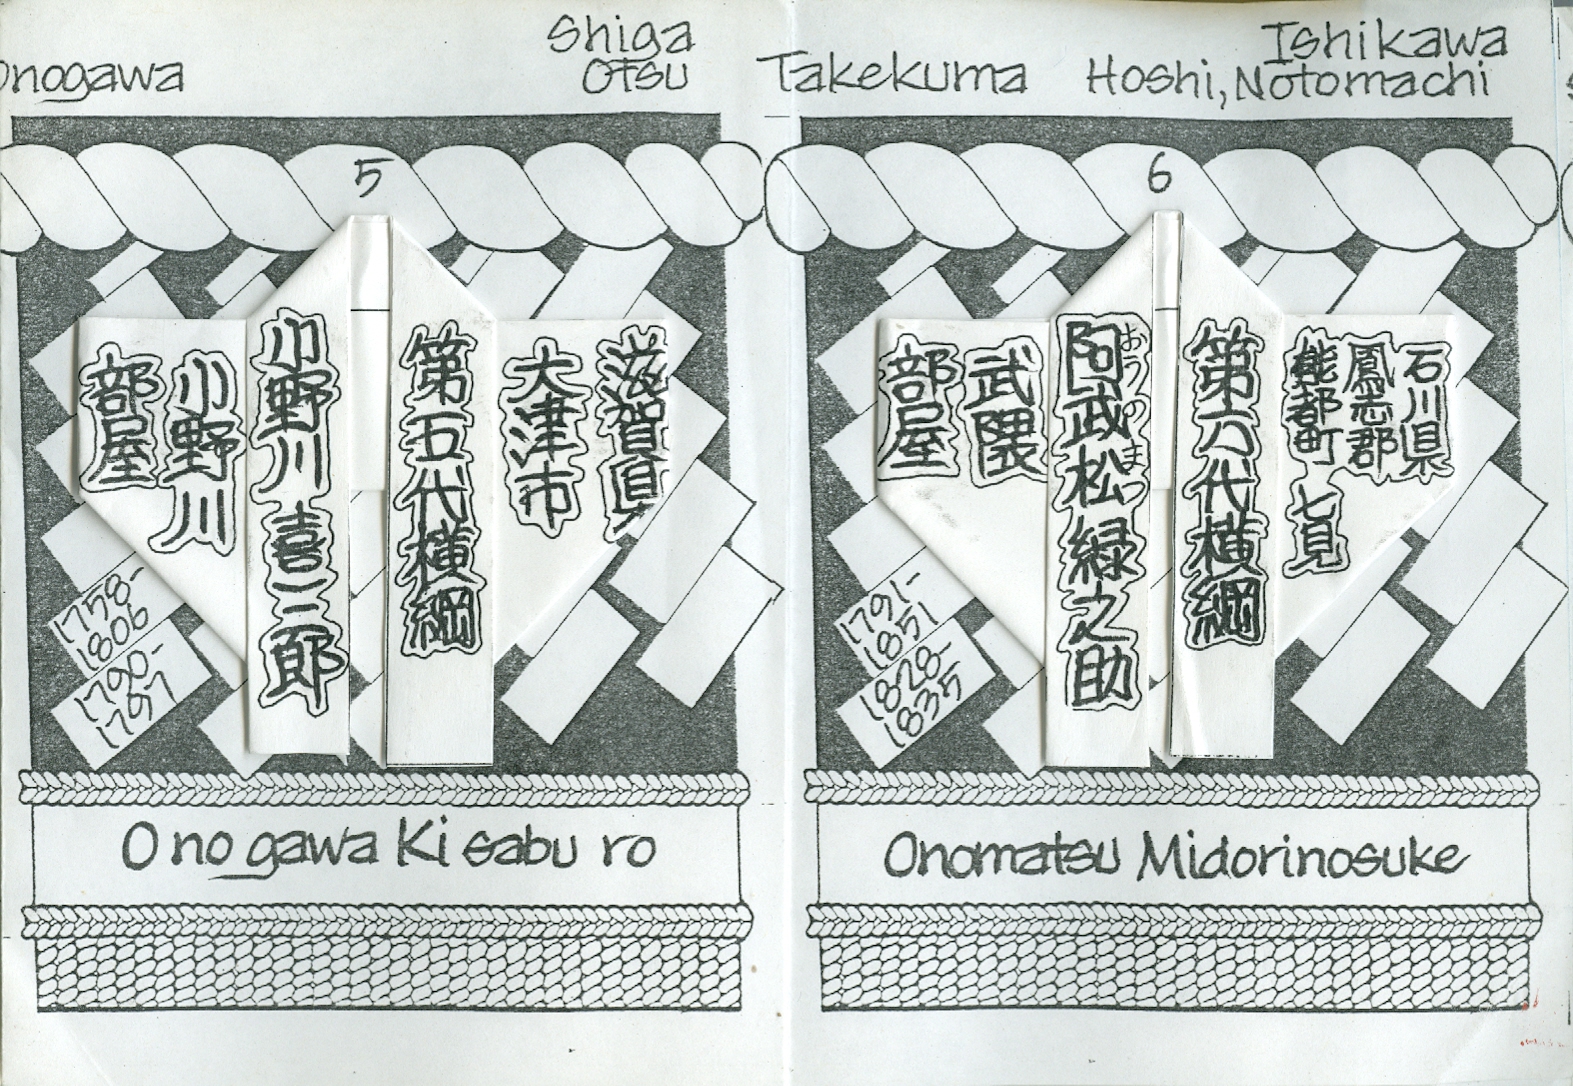 Onogawa
Shiga
Otsu
5
滋賀県
大津市
第五代横綱
小野川 喜三郎
小野川
部屋
1758-
1806
1790-
1797
Onogawa Kisaburo
Takekuma
Ishikawa
Hoshi, Notomachi
6
石川県
鳳志郡
能都町 七見
第六代横綱
阿武松緑之助
おうのまつ
武隈
部屋
1791-
1851
1828-
1835
Onomatsu Midorinosuke